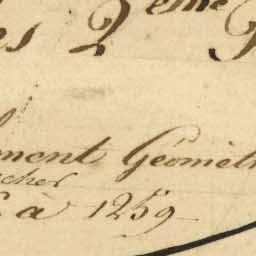 es 2 eme
ment Géomét
cher
à 1259